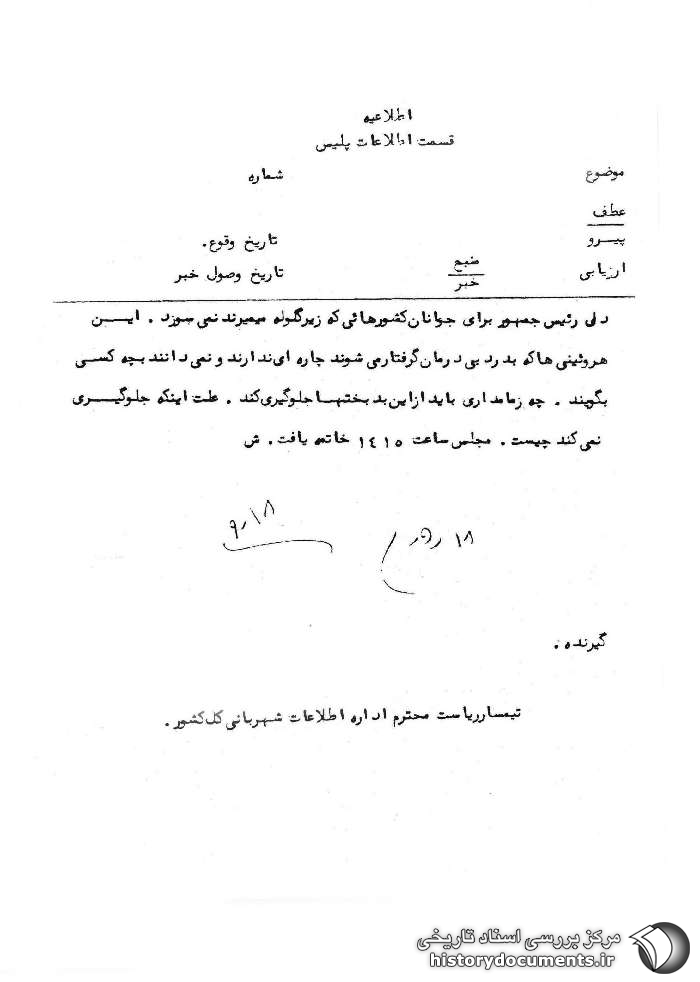 اطلاعیه
قسمت اطلاعات پلیس
موضوع شماره
عطف
پیـــرو تاریخ وقوع.
ارزیابی منبع خبر تاریخ وصول خبر
دلی رئیس جمهور برای جوانان کشورهائی که زیر گلوله میمیرند نمی سوزد . ایـــن
هروئینی ها که بدرد بی درمان گرفتار می شوند چاره ای ندارند و نمی دانند بچه کسی
بگویند . چه زمامداری باید از این بدبختهـا جلوگیری کند . علت اینکه جلوگیـــری
نمی کند چیست . مجلس ساعت ۱۴۱۵ خاتمه یافت . ش
گیرنده .
تیمسار ریاست محترم اداره اطلاعات شهربانی کل کشور .
مرکز بررسی اسناد تاریخی
historydocuments.ir